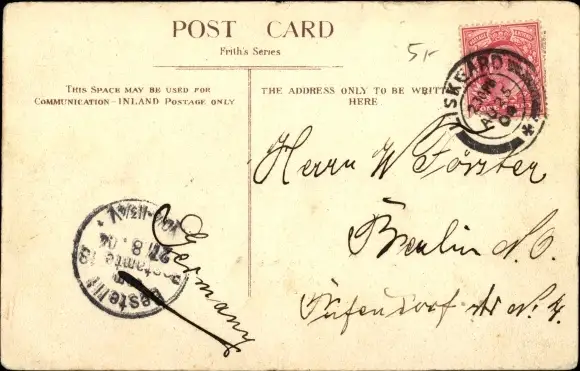 POST CARD
Frith's Series
5/-
THIS SPACE MAY BE USED FOR
COMMUNICATION - INLAND POSTAGE ONLY
THE ADDRESS ONLY TO BE WRITT
HERE
LISKEARD
AU 25
Herrn W Förster
Berlin N.O.
Pufendorf str N. 4.
Germany
Bestellt
vom
Postamte 18
27.8.04